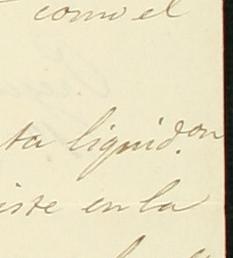 como el
ta liquid.on
iste en la